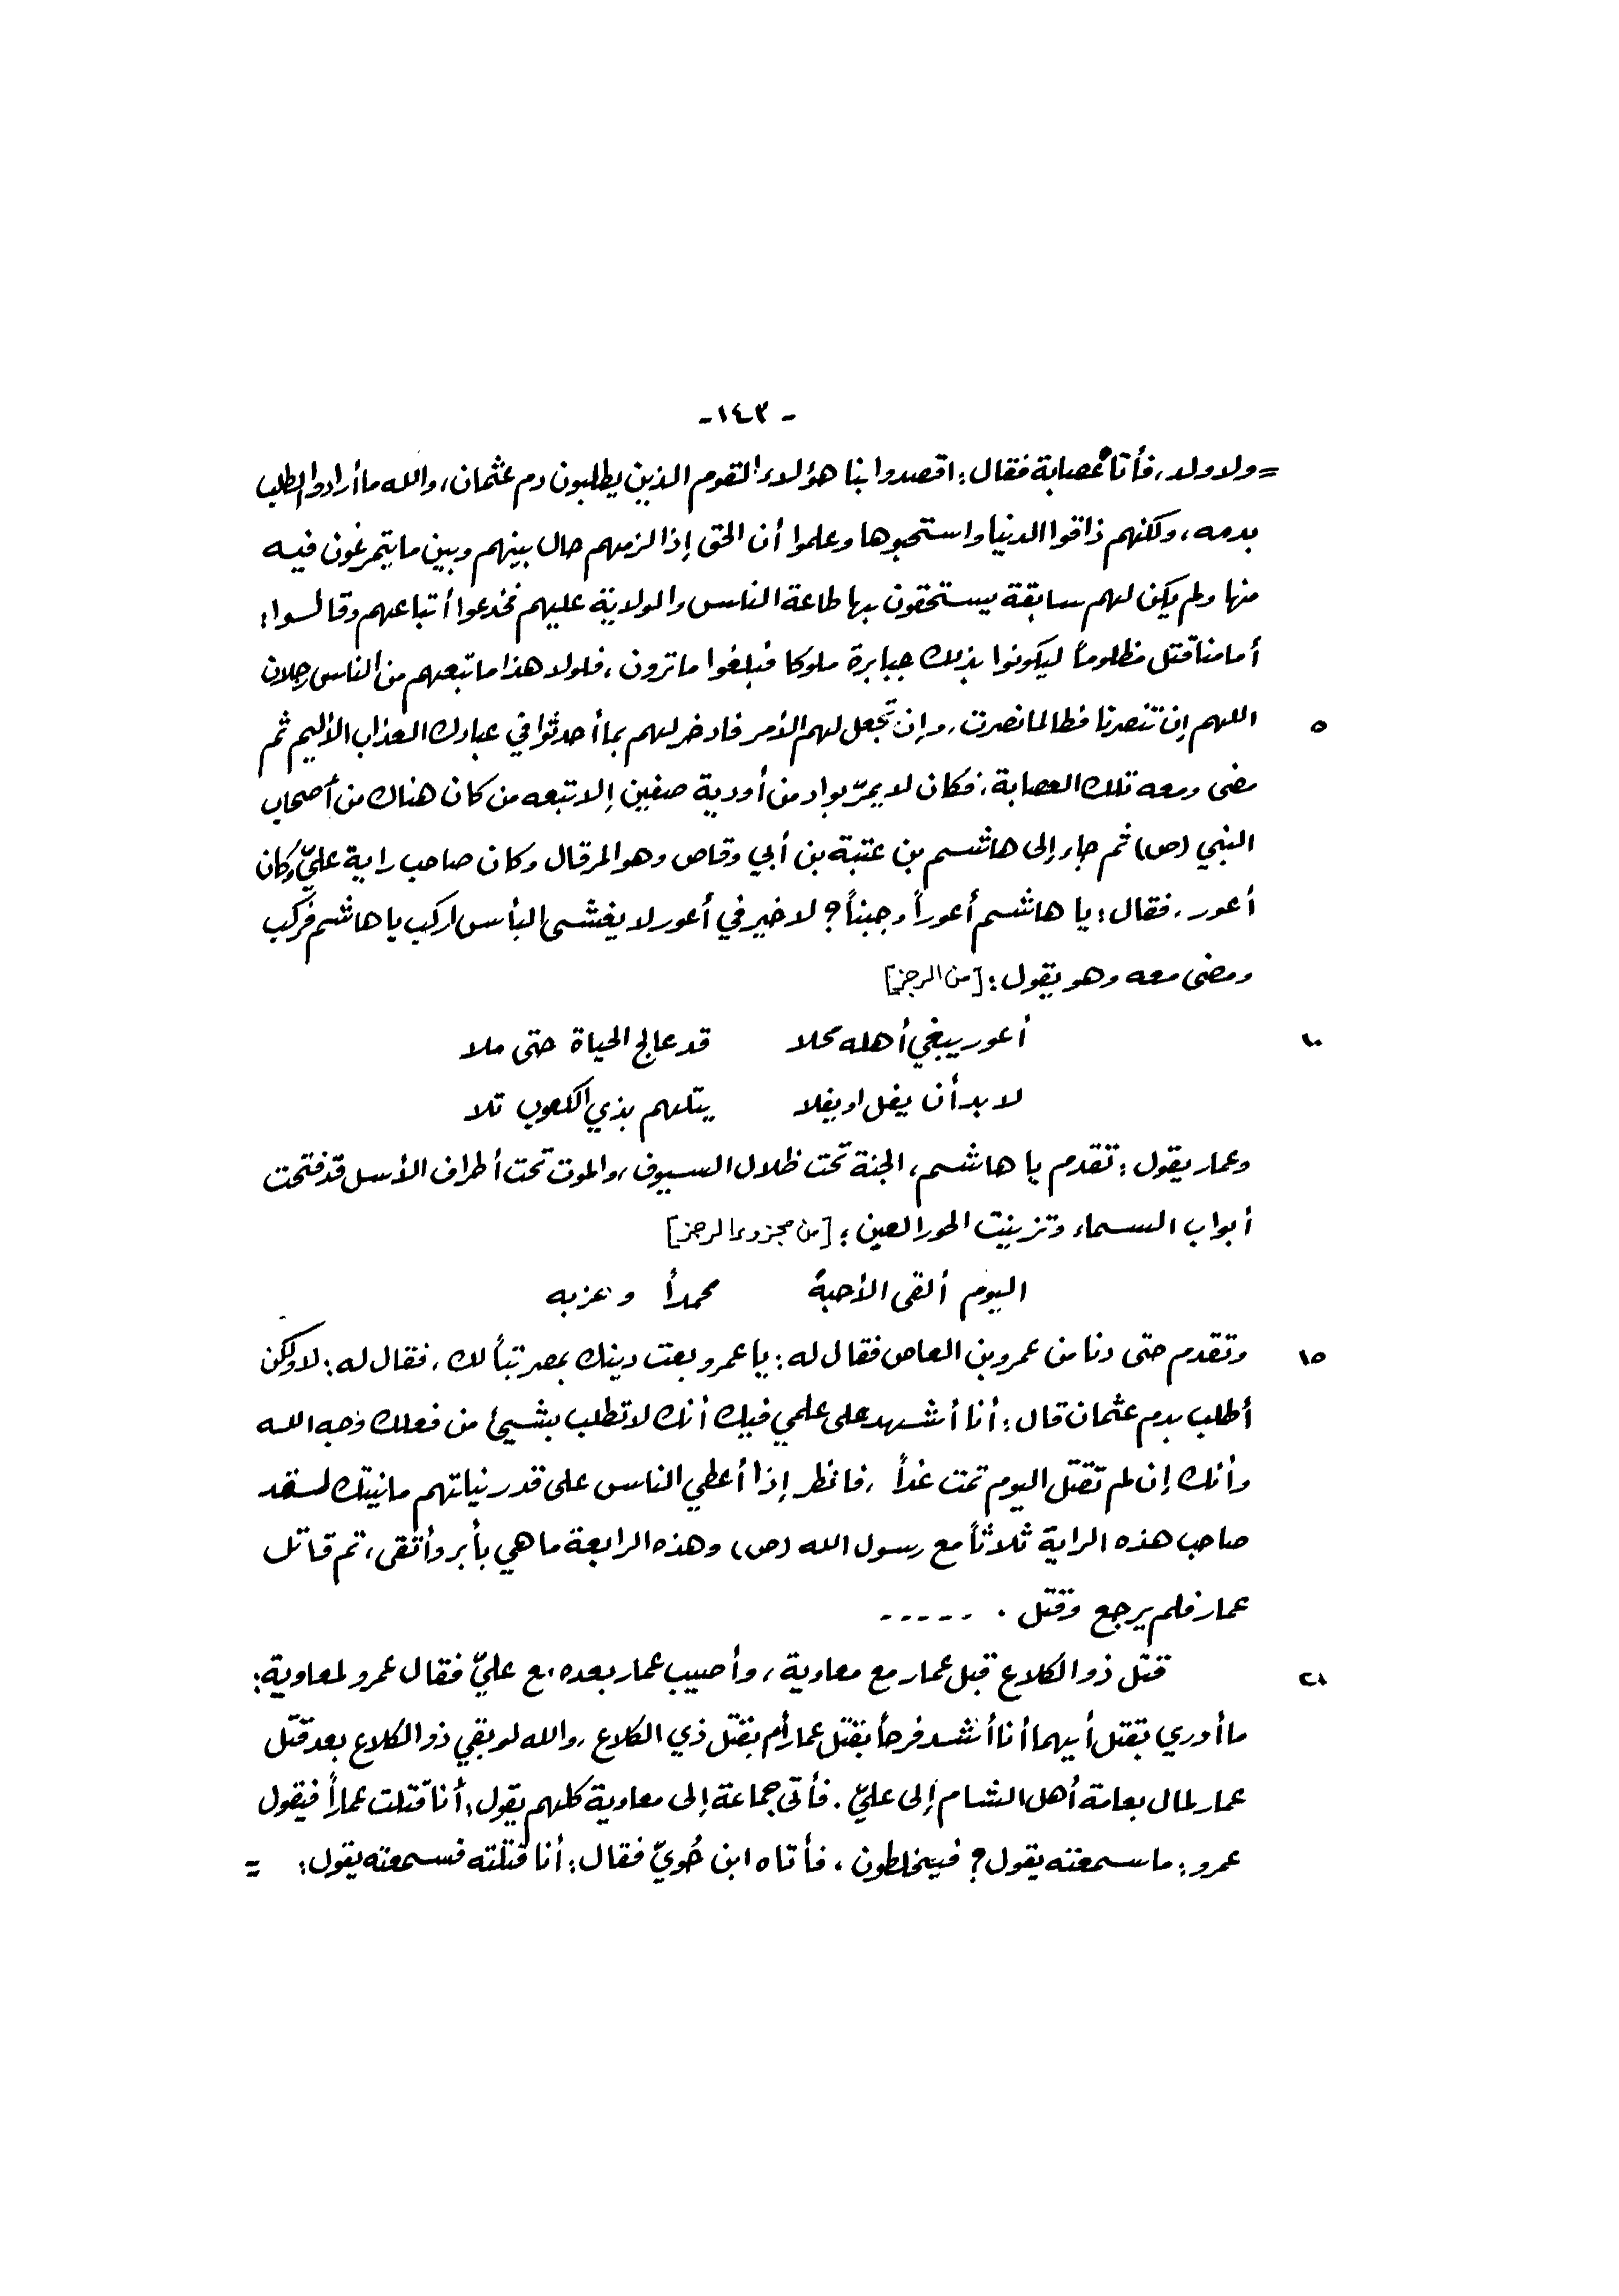 - ١٤٣ -
= ولا ولد، فأتاه عصابة فقال: اقصدوا بنا هؤلاء القوم الذين يطلبون دم عثمان، والله ما أرادوا الطلب
بدمه، ولكنهم ذاقوا الدنيا واستحبوها وعلموا أن الحق إذا لزمهم حال بينهم وبين ما يتمرغون فيه
منها ولم يكن لهم سابقة يستحقون بها طاعة الناس والولاية عليهم فخدعوا أتباعهم وقالوا:
أمامنا قتل مظلوماً ليكونوا بذلك جبابرة ملوكا فبلغوا ما ترون، فلولا هذا ما تبعهم من الناس رجلان
٥ اللهم إن تنصرنا فطالما نصرت، وإن تجعل لهم الأمر فادخر لهم بما أحدثوا في عبادك العذاب الأليم ثم
مضى ومعه تلك العصابة، فكان لا يمرّ بوادٍ من أودية صفين إلا تبعه من كان هناك من أصحاب
النبي (ص) ثم جاء إلى هاشم بن عتبة بن أبي وقاص وهو المرقال وكان صاحب راية عليّ وكان
أعور، فقال: يا هاشم أعوراً وجبناً؟ لا خير في أعور لا يغشى البأس اركب يا هاشم فركب
ومضى معه وهو يقول: [من الرجز]
١٠ أعور يبغي أهله محلا قد عالج الحياة حتى ملا
لا بد أن يفل او يفلا يتلهم بذي الكعوب تلا
وعمار يقول: تقدم يا هاشم، الجنة تحت ظلال السيوف، والموت تحت أطراف الأسل قد فتحت
أبواب السماء وتزينت الحور العين: [من مجزوء الرجز]
اليوم ألقى الأحبة محمداً وحزبه
١٥ وتقدم حتى دنا من عمرو بن العاص فقال له: يا عمرو بعت دينك بمصر تبأ لك، فقال له: لا ولكن
أطلب بدم عثمان قال: أنا أشهد على علمي فيك أنك لا تطلب بشيئ من فعلك وجه الله
وأنك إن لم تقتل اليوم تمت غداً، فانظر إذا أعطي الناس على قدر نياتهم ما نيتك لسقد
صاحب هذه الراية ثلاثاً مع رسول الله (ص) وهذه الرابعة ما هي بأبر وأتقى، ثم قاتل
عمار فلم يرجع وقتل . - - - - -
٢١ قتل ذو الكلاع قبل عمار مع معاوية، وأصيب عمار بعده مع عليّ فقال عمرو لمعاوية:
ما أدري بقتل أيهما أنا أشد فرحاً بقتل عمار أم بقتل ذي الكلاع، والله لو بقي ذو الكلاع بعد قتل
عمار لمال بعامة أهل الشام إلى عليّ. فأتى جماعة إلى معاوية كلهم يقول: أنا قتلت عماراً فيقول
عمرو: ما سمعته يقول؟ فيخلطون، فأتاه ابن حُويّ فقال: أنا قتلته فسمعته يقول: =